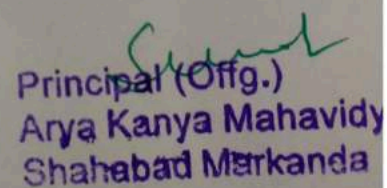 Principal (Offg.)
Arya Kanya Mahavidy
Shahabad Markanda